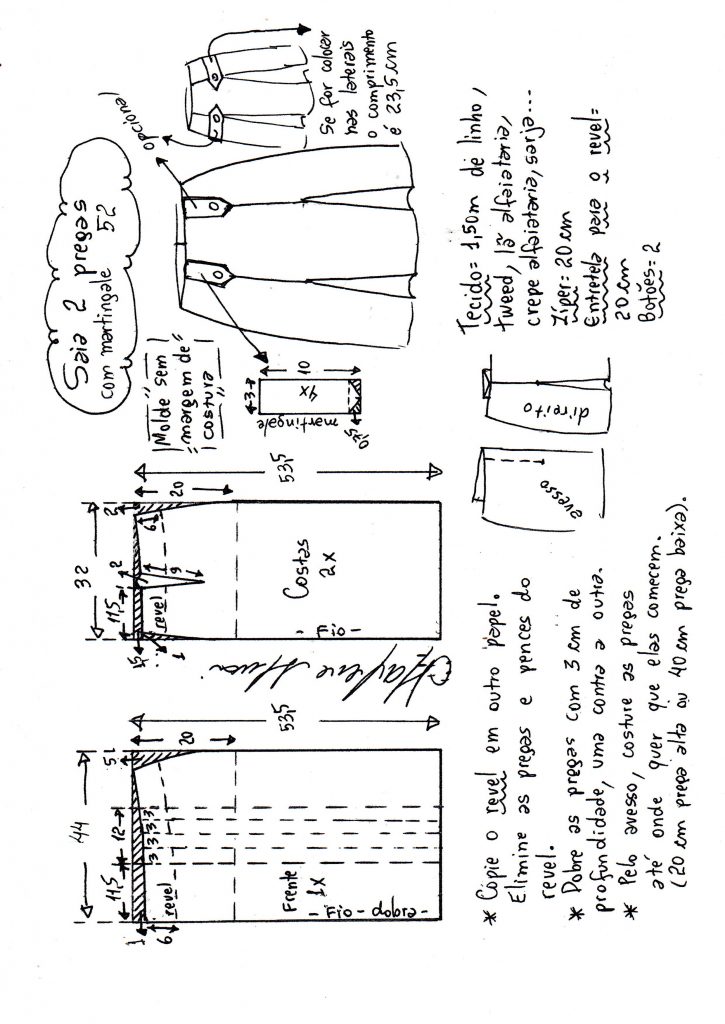 Saia 2 pregas
com martingale 52
opcional
Se for colocar
nas laterais
o comprimento
é 23,5 cm
"Molde sem
margem de
costura"
3
10
4x
martingale
0,75
44
11,5
12
5
3 3 3 3
1
6
revel
20
53,5
Frente
1x
- Fio - dobra -
32
11,5
2
2
1,5
1
revel
9
6
20
53,5
Costas
2x
- Fio -
Marlene Mukai
Tecido = 1,50m de linho,
tweed, lã alfaiataria,
crepe alfaiataria, sarja...
Zíper: 20 cm
Entretela para o revel =
20 cm
Botões = 2
avesso
direito
* Copie o revel em outro papel.
Elimine as pregas e pences do
revel.
* Dobre as pregas com 3 cm de
profundidade, uma contra a outra.
* Pelo avesso, costure as pregas
até onde quer que elas comecem.
(20 cm prega alta ou 40 cm prega baixa).